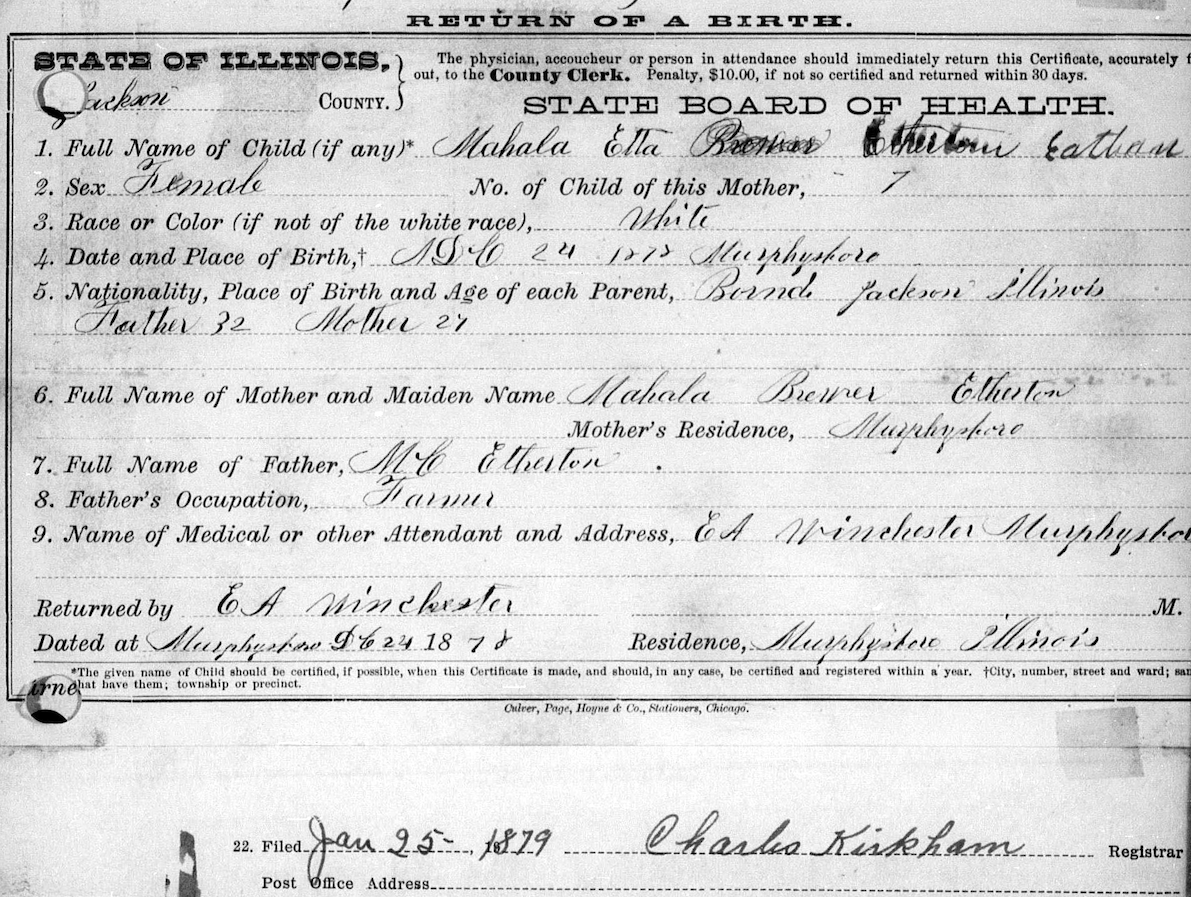 RETURN OF A BIRTH.
STATE OF ILLINOIS,
Jackson COUNTY.
The physician, accoucheur or person in attendance should immediately return this Certificate, accurately
out, to the County Clerk. Penalty, $10.00, if not so certified and returned within 30 days.
STATE BOARD OF HEALTH.
1. Full Name of Child (if any)* Mahala Etta Brewer Etherton
2. Sex Female No. of Child of this Mother, 7
3. Race or Color (if not of the white race), White
4. Date and Place of Birth,† 24 1878 Murphysboro
5. Nationality, Place of Birth and Age of each Parent, Jackson Illinois
Father 32 Mother 27
6. Full Name of Mother and Maiden Name Mahala Brewer Etherton
Mother's Residence, Murphysboro
7. Full Name of Father, MC Etherton
8. Father's Occupation, Farmer
9. Name of Medical or other Attendant and Address, EA Winchester Murphysbo
Returned by EA Winchester M.
Dated at Murphysboro DC 24 1878 Residence, Murphysboro Illinois
*The given name of Child should be certified, if possible, when this Certificate is made, and should, in any case, be certified and registered within a year. †City, number, street and ward;
hat have them; township or precinct.
Culver, Page, Hoyne & Co., Stationers, Chicago.
22. Filed Jan 25, 1879 Charles Kirkham Registrar
Post Office Address